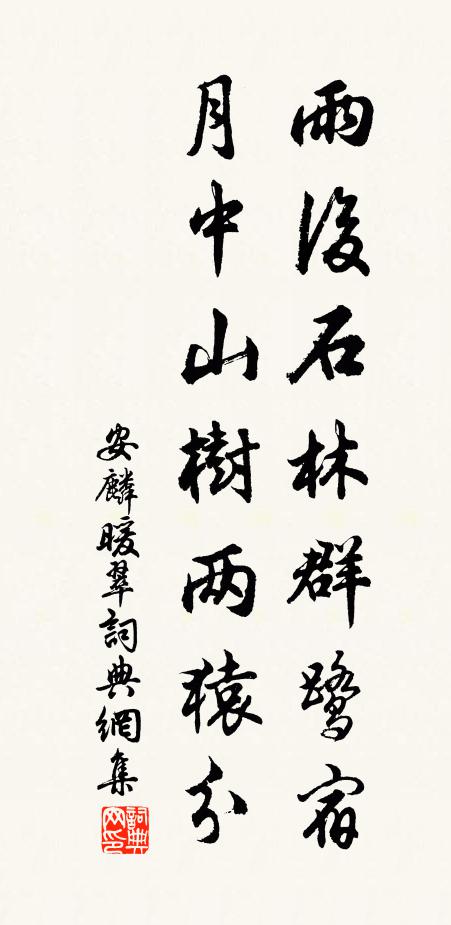 雨後石林群鷺宿
月中山樹兩猿分
安麟暖翠詞典網集
詞典网印